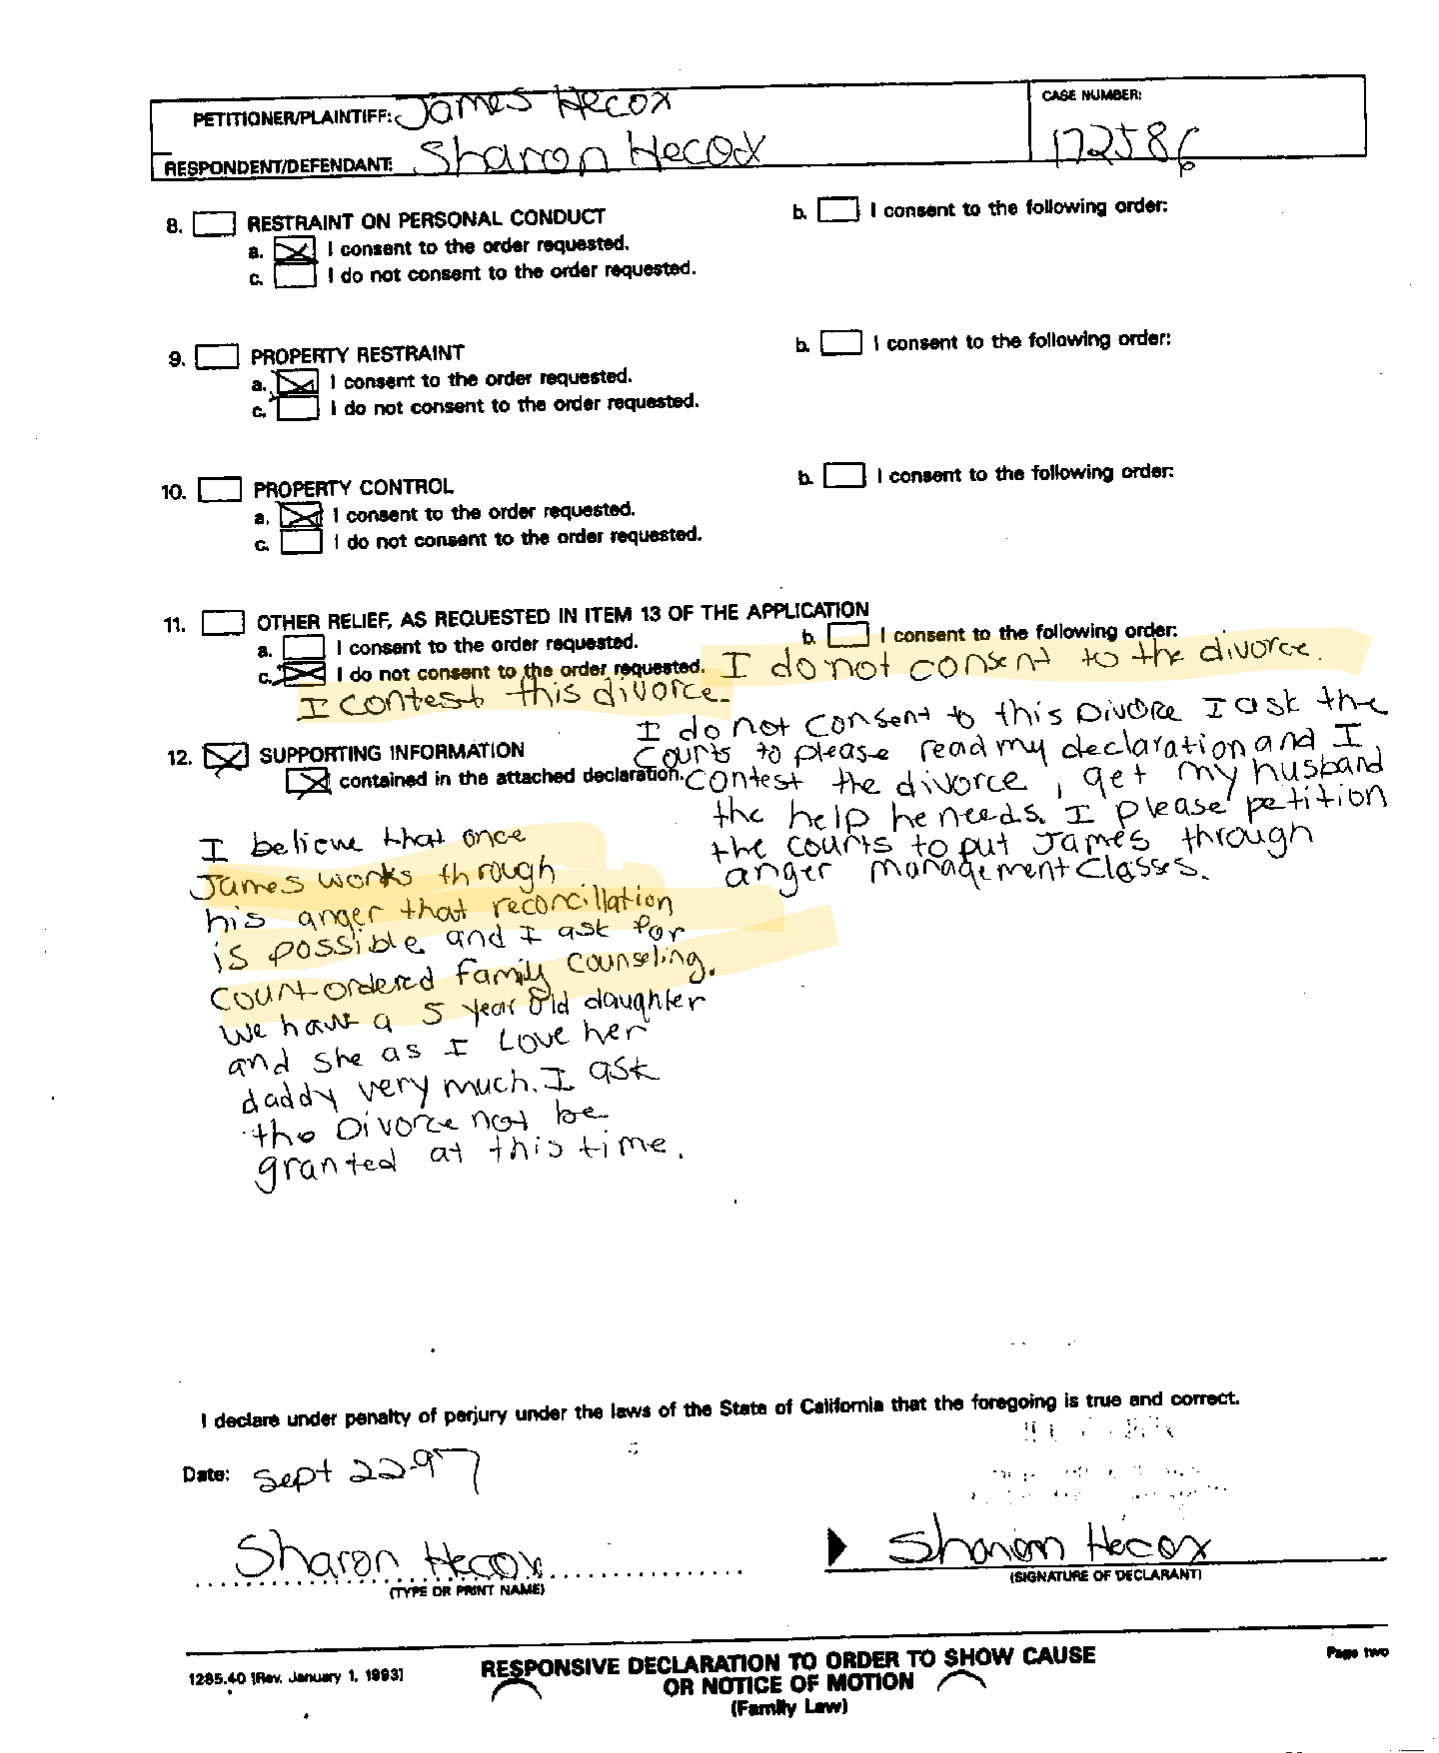 PETITIONER/PLAINTIFF: James Hecox
CASE NUMBER:
RESPONDENT/DEFENDANT: Sharon Hecox
172586
8. RESTRAINT ON PERSONAL CONDUCT
b. I consent to the following order:
a. I consent to the order requested.
c. I do not consent to the order requested.
9. PROPERTY RESTRAINT
b. I consent to the following order:
a. I consent to the order requested.
c. I do not consent to the order requested.
10. PROPERTY CONTROL
b. I consent to the following order:
a. I consent to the order requested.
c. I do not consent to the order requested.
11. OTHER RELIEF, AS REQUESTED IN ITEM 13 OF THE APPLICATION
a. I consent to the order requested.
b. I consent to the following order:
c. I do not consent to the order requested. I do not consent to the divorce.
I contest this divorce.
I do not consent to this Divorce I ask the
Courts to please read my declaration and I
contest the divorce, get my husband
the help he needs. I please petition
the courts to put James through
anger management classes.
12. SUPPORTING INFORMATION
contained in the attached declaration.
I believe that once
James works through
his anger that reconcillation
is possible and I ask for
Court-ordered family counseling.
We have a 5 year old daughter
and she as I Love her
daddy very much. I ask
the Divorce not be
granted at this time.
I declare under penalty of perjury under the laws of the State of California that the foregoing is true and correct.
Date: Sept 22-97
Sharon Hecox
(TYPE OR PRINT NAME)
Sharon Hecox
(SIGNATURE OF DECLARANT)
1285.40 [Rev. January 1, 1993]
RESPONSIVE DECLARATION TO ORDER TO SHOW CAUSE
OR NOTICE OF MOTION
(Family Law)
Page two